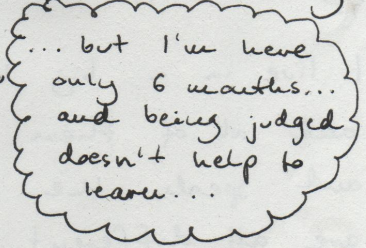 ... but I'm here
only 6 months...
and being judged
doesn't help to
learn...